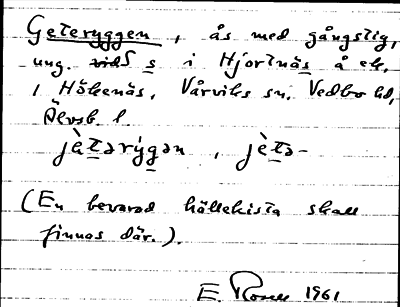 Geteryggen, ås med gångstig,
ung. S s i Hjortnäs å ek.
i Håkenäs, Vårviks sn. Vedbo hd,
Älvsb. l.
jè̀tərýgən, jètə-
(En bevarad hällekista skall
finnas där.).
E. Rosell 1961